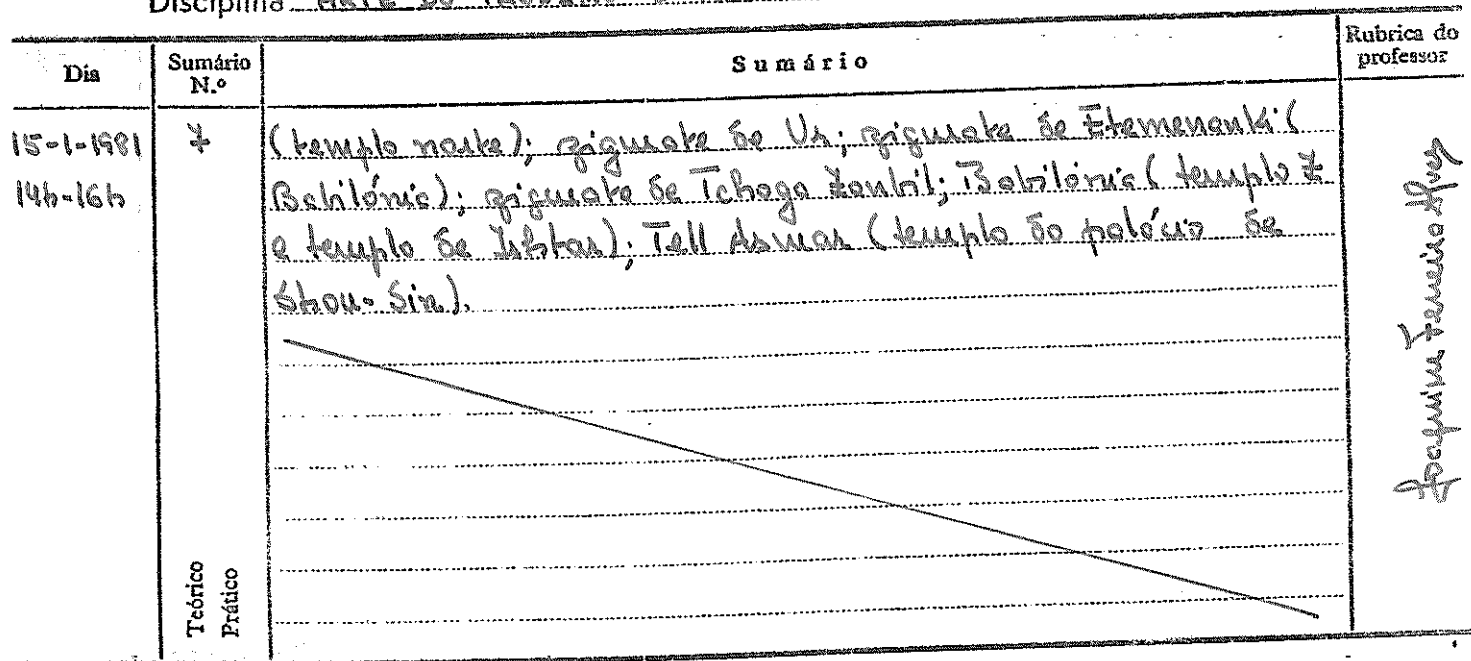 Disciplina
Dia
Sumário N.º
Sumário
Rubrica do professor
15-1-1981
14h-16h
7
(templo norte); zigurate de Ur; zigurate de Etemenanki (
Babilónia); zigurate de Tchoga Zanbil; Babilónia (templo Z
e templo de Ishtar); Tell Asmar (templo do palácio de
Shou-Sin).
Teórico
Prático
Joaquim Ferreira Alves